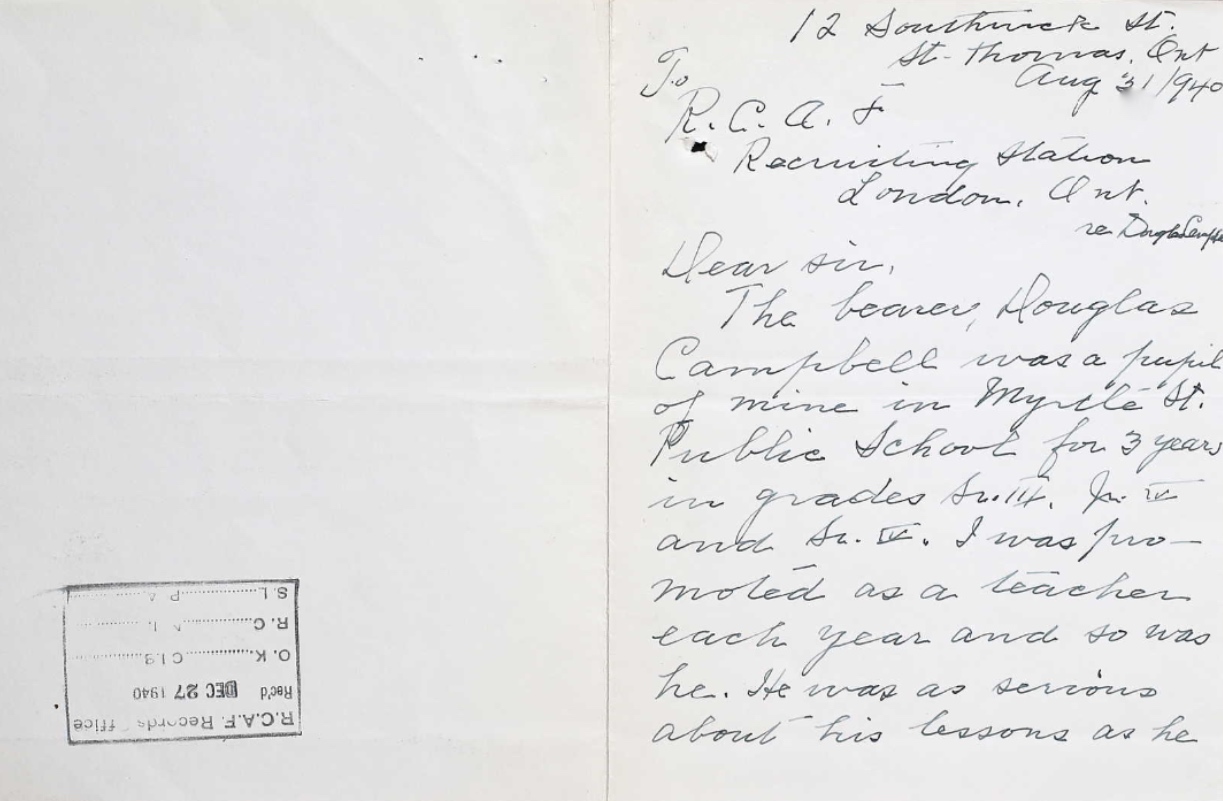 12 Southwick St.
St. Thomas, Ont
Aug 31/940
To
R. C. A. F
Recruiting Station
London, Ont.
re Douglas
Dear sir,
The bearer, Douglas
Campbell was a pupil
of mine in Myrtle St.
Public School for 3 years
in grades Sr. III. Jr. IV
and Sr. IV. I was pro-
moted as a teacher
each year and so was
he. He was as serious
about his lessons as he
R.C.A.F. Records Office
Rec'd DEC 27 1940
O. K.
R. C.
S. L.